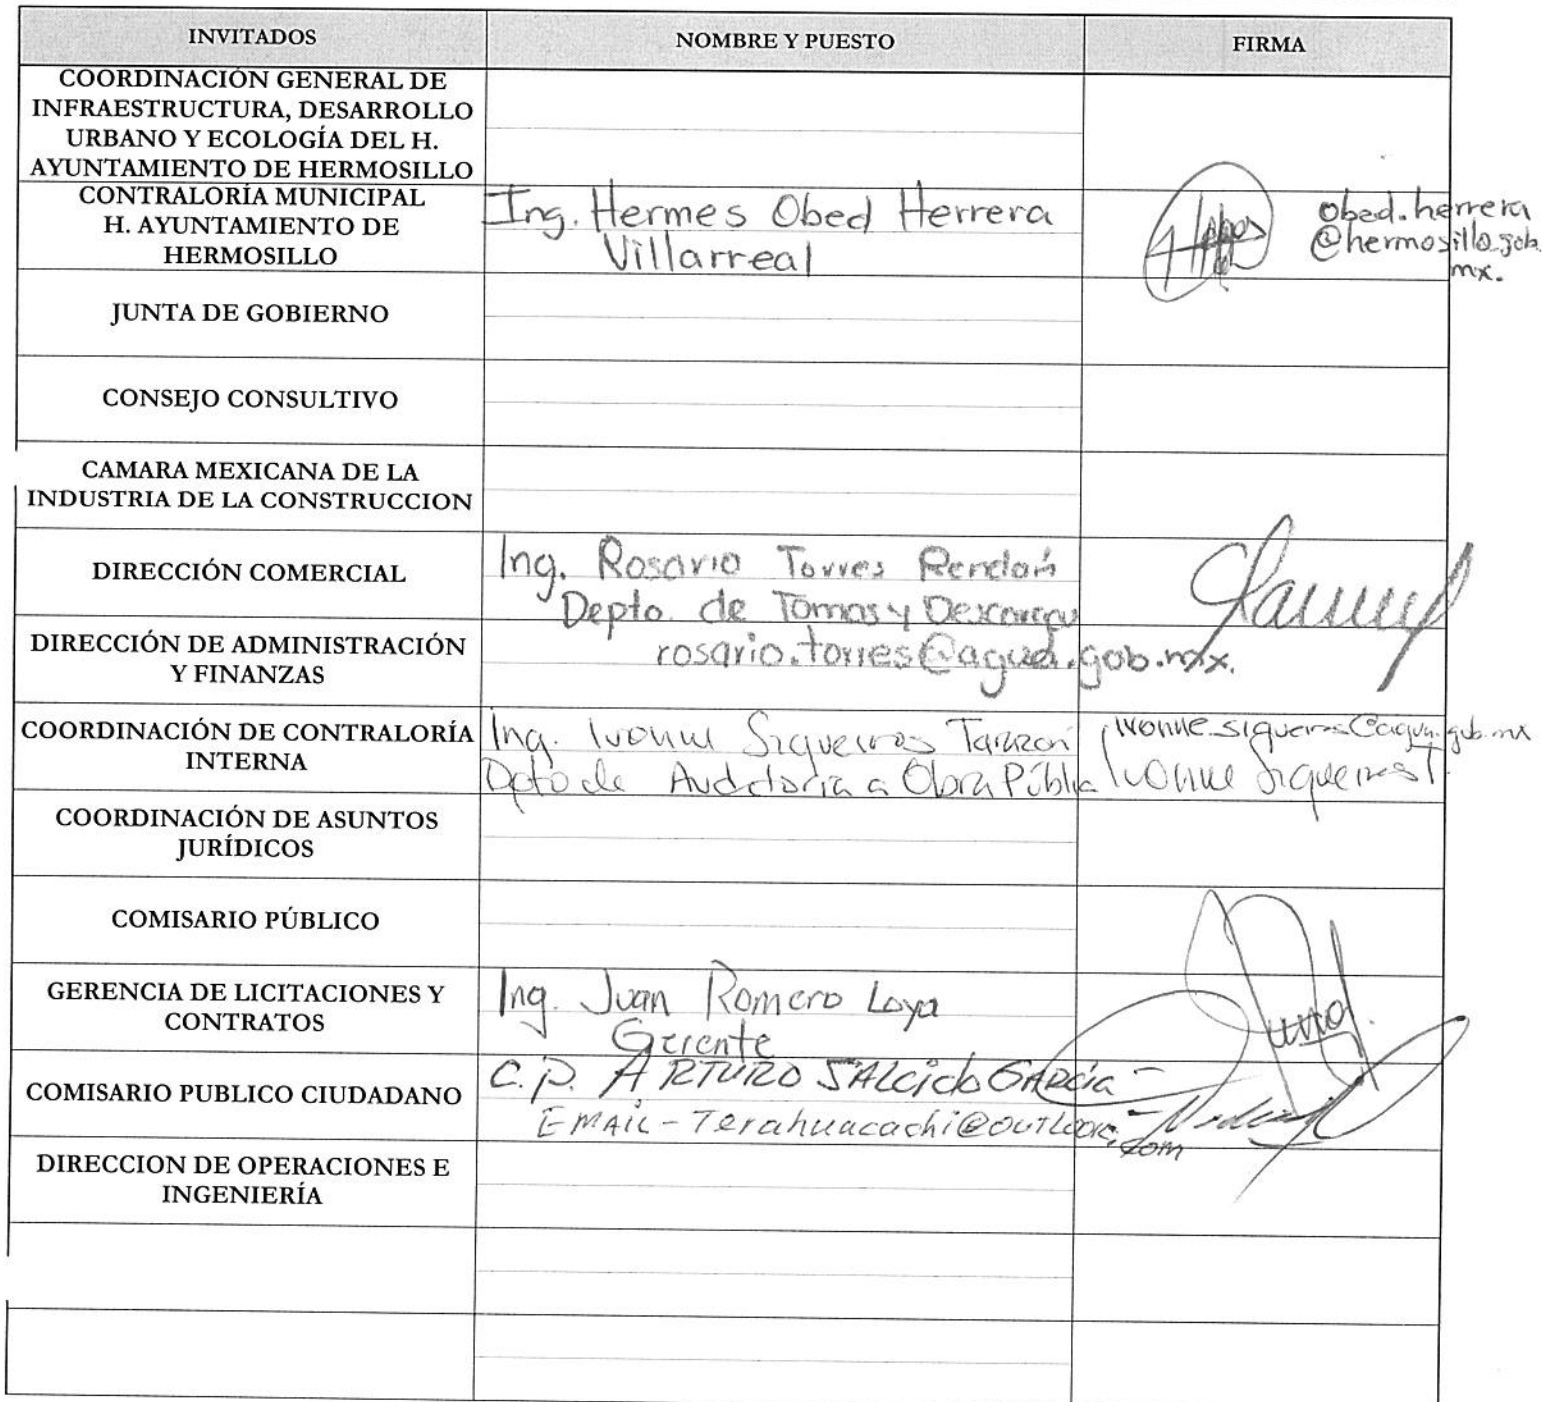 INVITADOS NOMBRE Y PUESTO FIRMA
COORDINACIÓN GENERAL DE
INFRAESTRUCTURA, DESARROLLO
URBANO Y ECOLOGÍA DEL H.
AYUNTAMIENTO DE HERMOSILLO
CONTRALORÍA MUNICIPAL
H. AYUNTAMIENTO DE
HERMOSILLO
Ing. Hermes Obed Herrera
Villarreal
obed.herrera
@hermosillo.gob.
mx.
JUNTA DE GOBIERNO
CONSEJO CONSULTIVO
CAMARA MEXICANA DE LA
INDUSTRIA DE LA CONSTRUCCION
DIRECCIÓN COMERCIAL
Ing. Rosario Torres Rendón
Depto. de Tomas y Descargas
rosario.torres@agua.gob.mx.
DIRECCIÓN DE ADMINISTRACIÓN
Y FINANZAS
COORDINACIÓN DE CONTRALORÍA
INTERNA
Ing. Ivonne Siqueiros Tarazón
Dpto de Auditoria a Obra Públia
ivonne.siqueiros@agua.gob.mx
Ivonne Siqueiros T.
COORDINACIÓN DE ASUNTOS
JURÍDICOS
COMISARIO PÚBLICO
GERENCIA DE LICITACIONES Y
CONTRATOS
Ing. Juan Romero Loya
Gerente
COMISARIO PUBLICO CIUDADANO
C.P. ARTURO SALCIDO GARCIA -
EMAIL - Terahuacachi@OUTLOOK.com
DIRECCION DE OPERACIONES E
INGENIERÍA